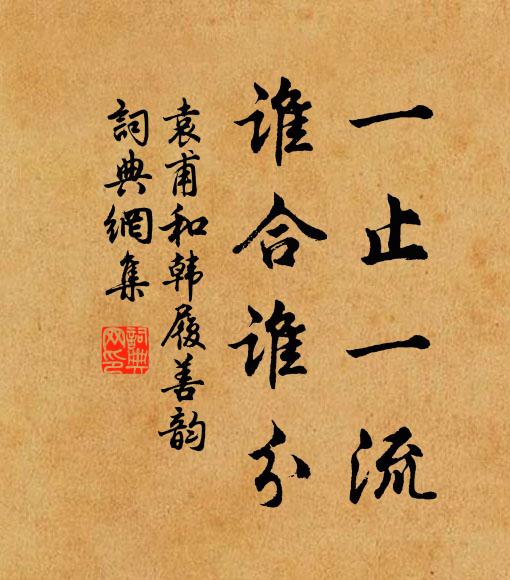 一止一流
誰合誰分
袁甫和韓履善韵
詞典網集
詞典
网印